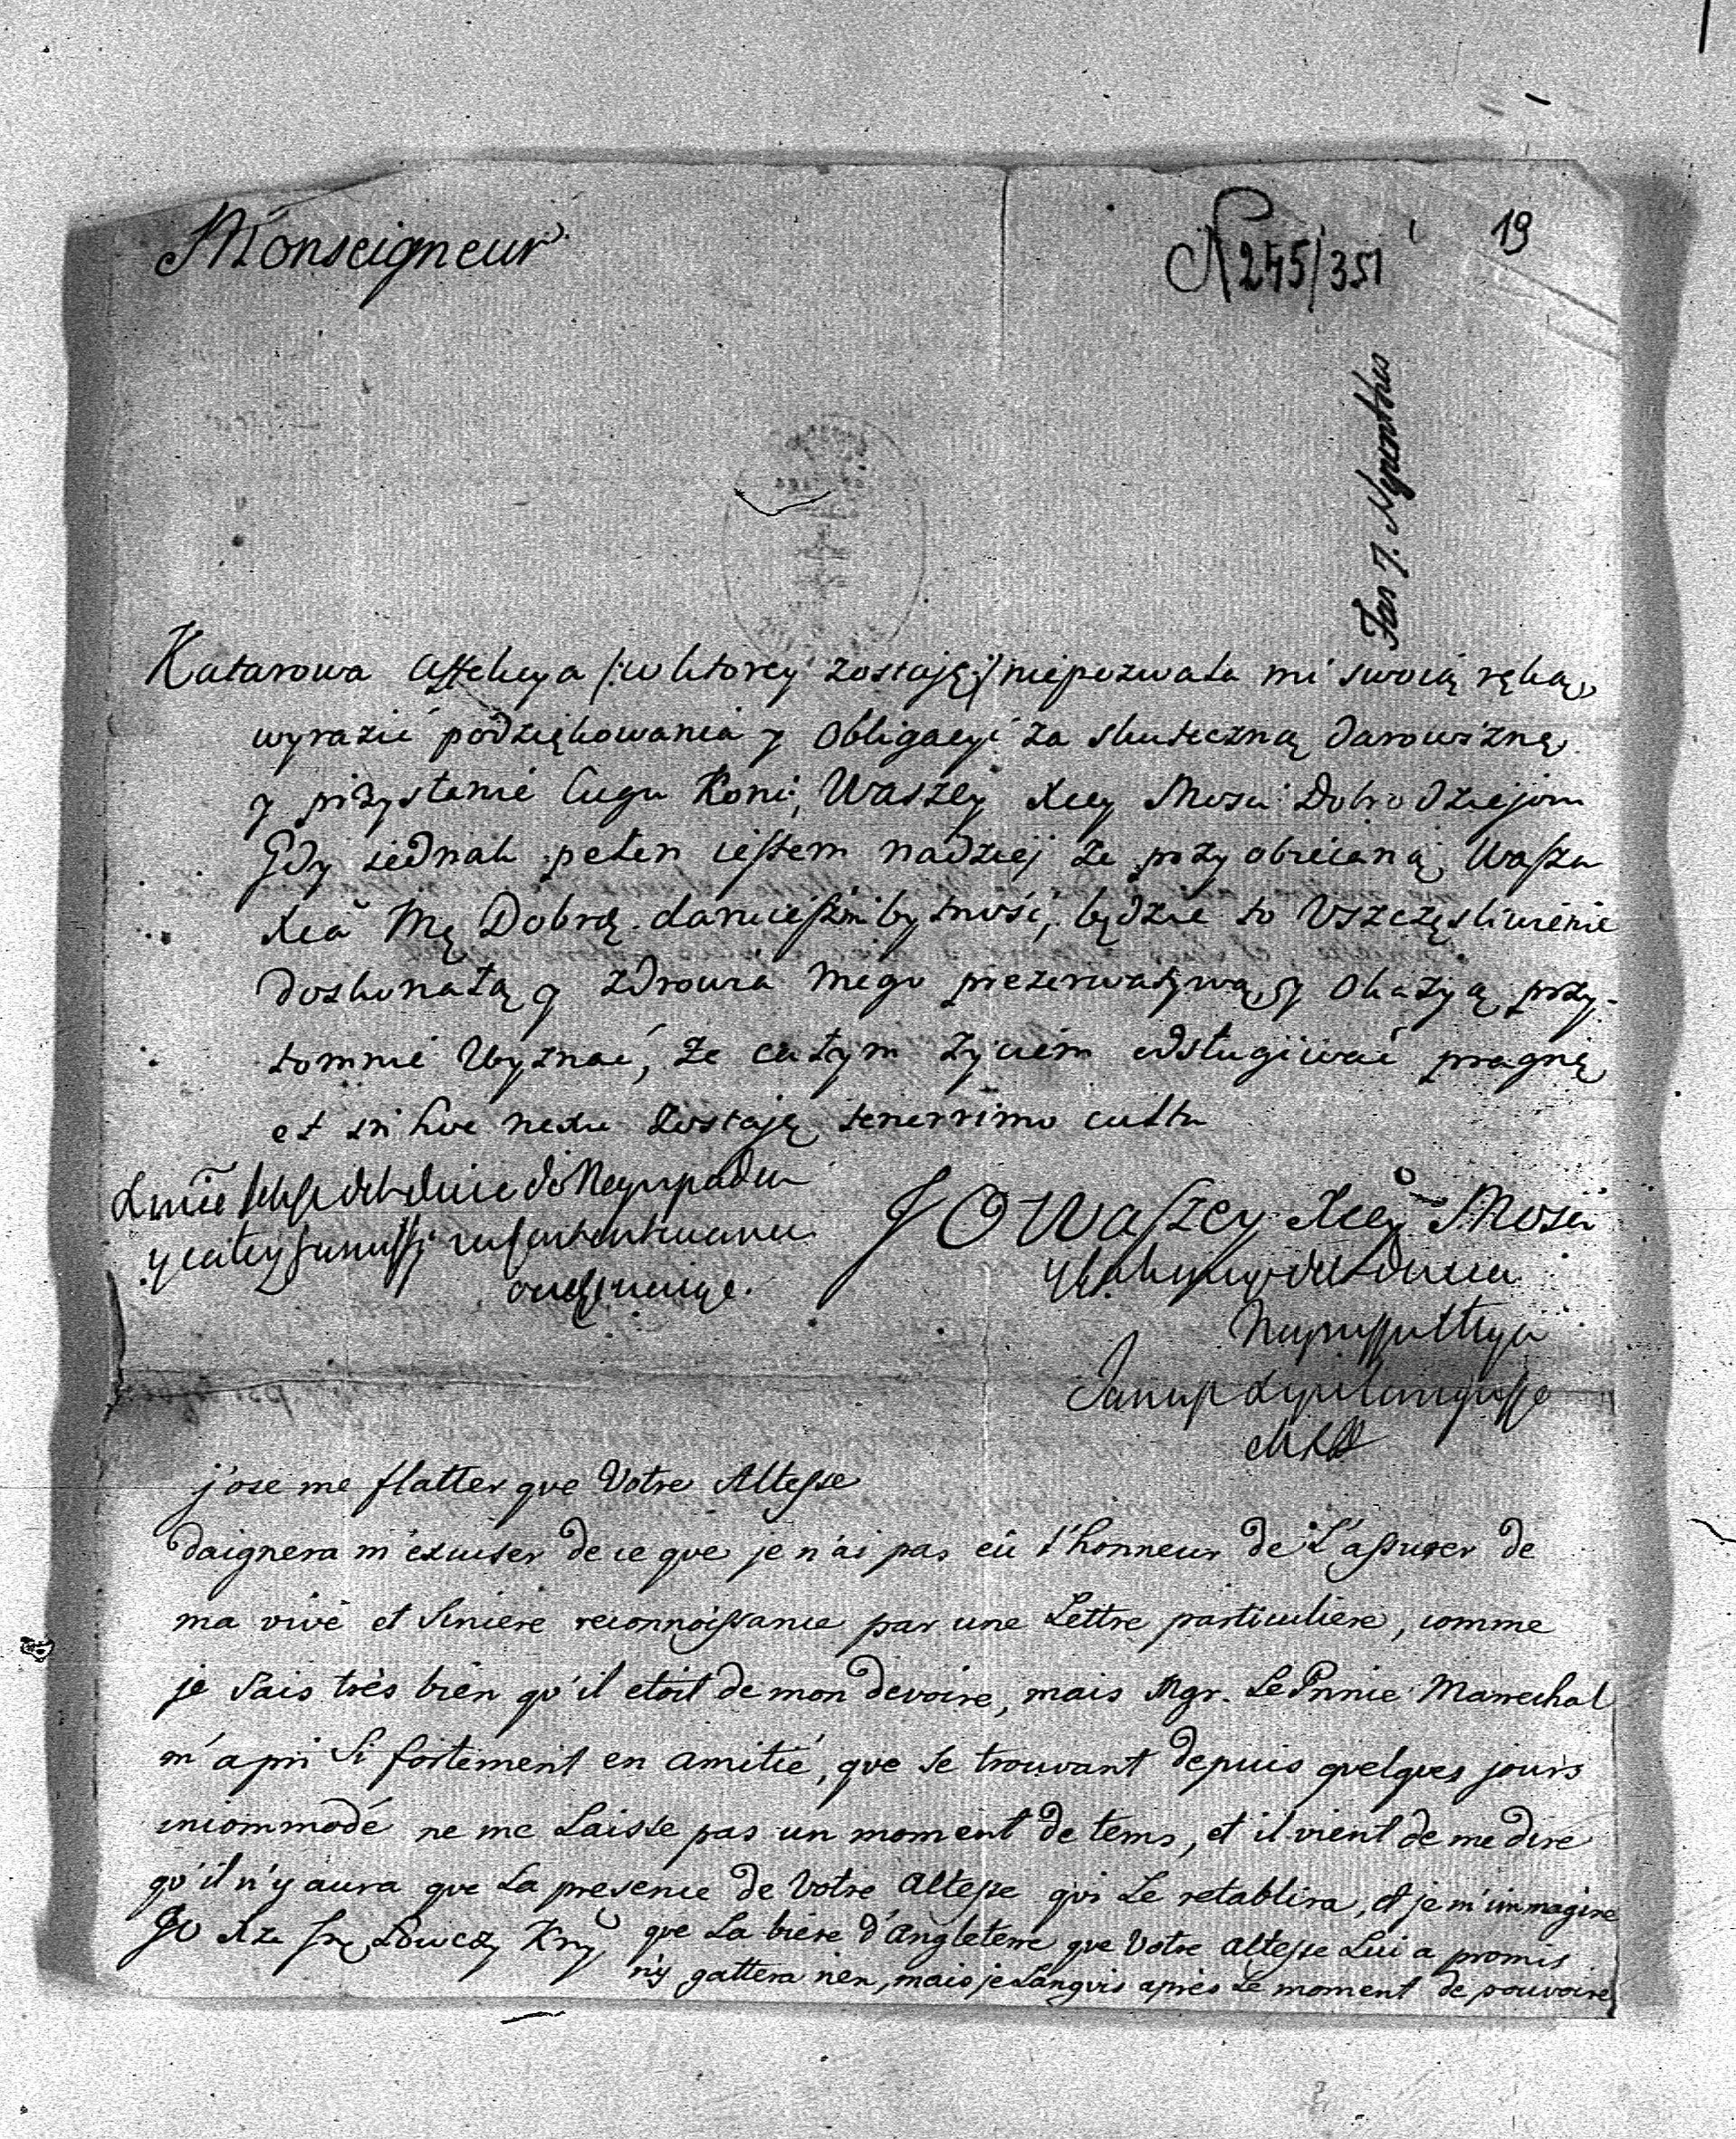 Monseigneur
N 245/351
19
Fas 7. 
Katarowa affekcya /: w ktorey zostaję :/ niepozwala mi swoią ręką
wyrazić podziękowania y obligacyi za skuteczną darowiznę
y przystanie Cugu Koni, Waszey Xcey Mości Dobrodziejow
Gdy iednak pełen iestem nadziej że przy obiecaną Wasza
Xcia Mę Dobrą bytność, będzie to Uszczęsliwienie
doskonałą zdrowia mego prezerwatywą y Okazyą przy-
tomnie Wyznać, że całym życiem odsługiwać pragnę
et in hoc nexu zostaję tenerrimo cultu
JO Waszey Xcey Mości
Janusz
j'ose me flatter que Votre Altesse
daignera m'excuser de ce que je n'ai pas eû l'honneur de L'assurer de
ma vive et Sincere reconnoissance par une Lettre particuliere, comme
je Sais très bien qu'il etoit de mon devoire, mais Mgr. Le Prince Marrechal
m'a pri Si fortement en amitié, que Se trouvant depuis quelques jours
incommodé ne me Laisse pas un moment de tems, et il vient de me dire
qu'il n'y aura que La presence de Votre Altesse qui Le retablira, et je m'immagine
JO Xże Łowczy Kry que La biére d'Angleterre que Votre Altesse Lui a promis
n'y gattera rien, mais je Languis après Le moment de pouvoire